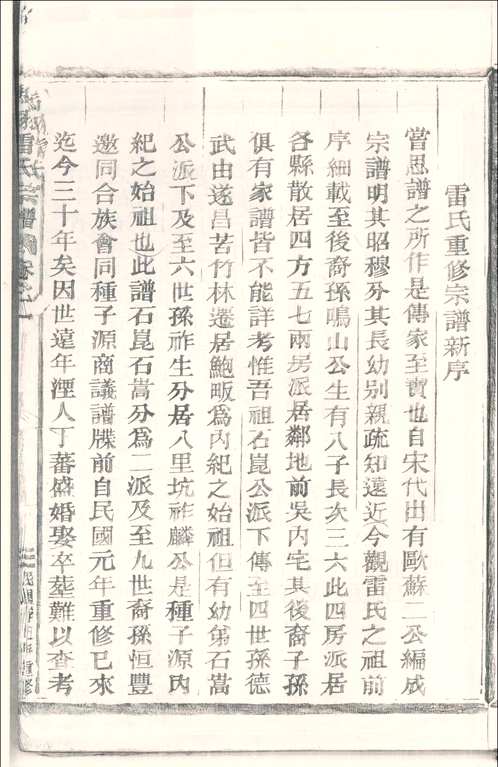 雷氏重修宗譜新序
嘗思譜之所作是傳家至寶也自宋代田有歐蘇二公編成
宗譜明其昭穆分其長幼别親疏知遠近今觀雷氏之祖前
序細載至後裔孫鳴山公生有八子長次三六此四房派居
各縣散居四方五七兩房派居鄰地前吳内宅其後裔子孫
俱有家譜皆不能詳考惟吾祖石崑公派下傳至四世孫德
武由遂昌苦竹林遷居鮑畈爲内紀之始祖但有幼弟石嵩
公派下及至六世孫祚生分居八里坑祚麟公是種子源内
紀之始祖也此譜石崑石嵩分爲二派及至九世裔孫恒豐
邀同合族會同種子源商議譜牒前自民國元年重修已來
迄今三十年矣因世遠年湮人丁蕃盛婚娶卒塟難以查考
雷氏宗譜